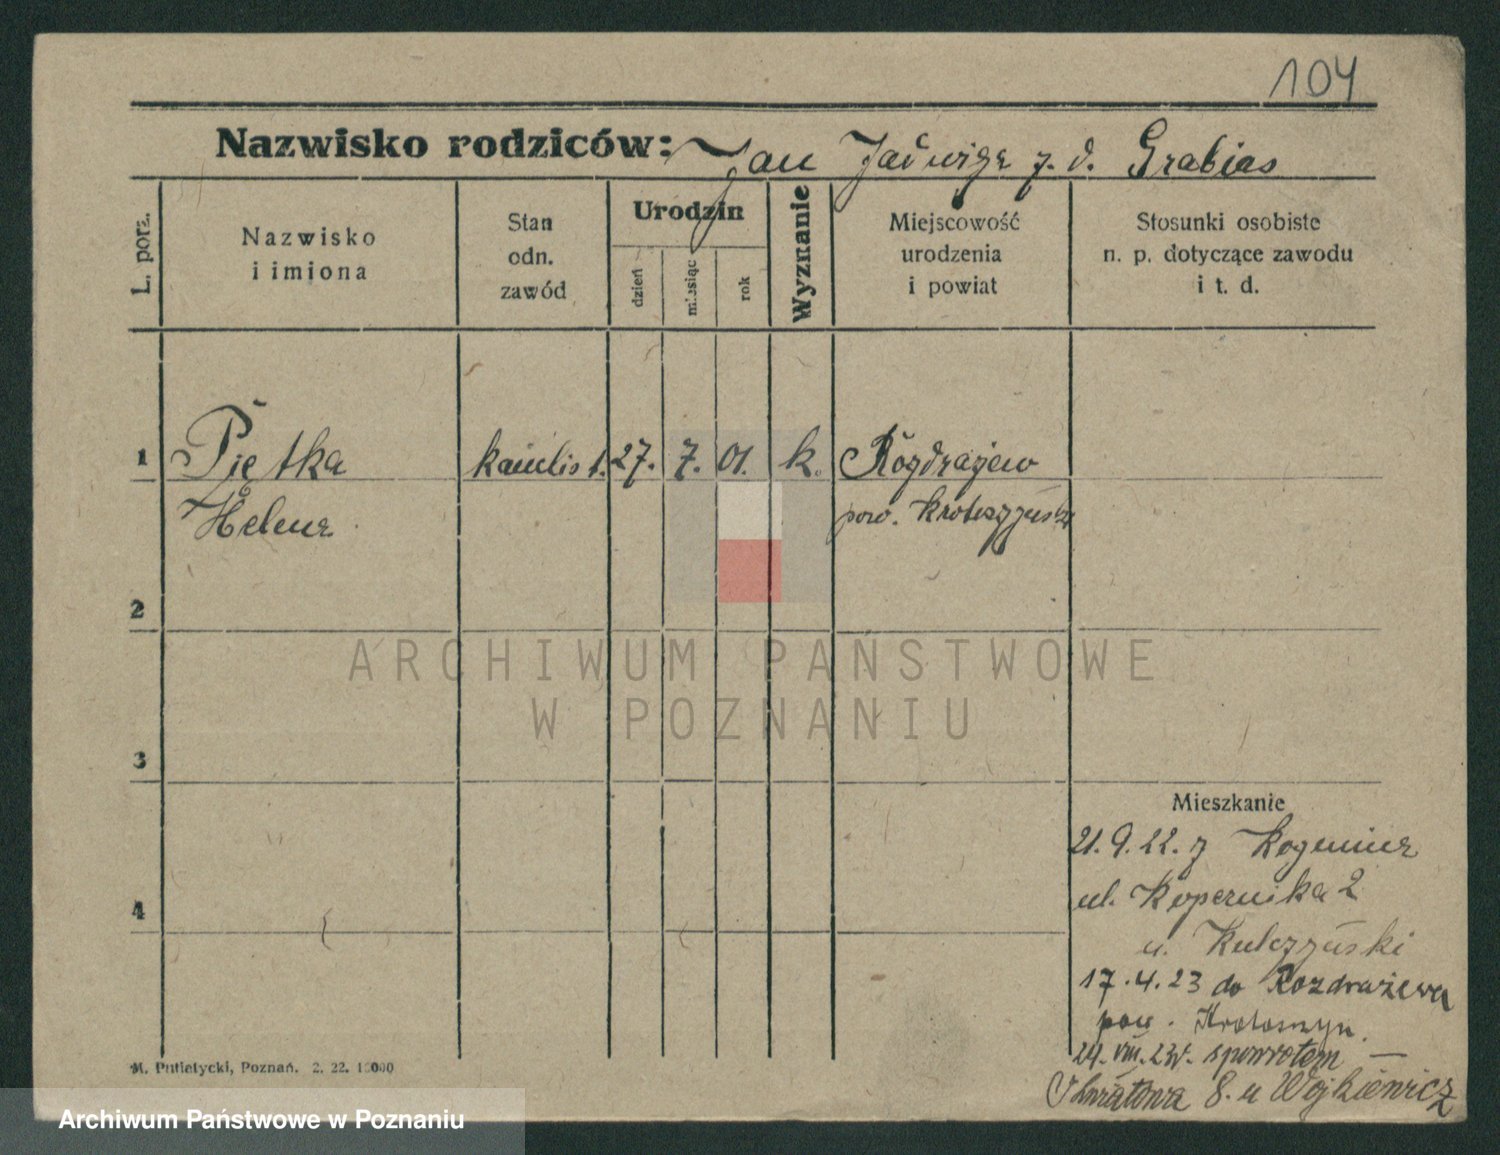 104
Nazwisko rodziców: Jan Jadwiga z. d. Grabias
L. porz.
Nazwisko
i imiona
Stan
odn.
zawód
Urodzin
dzień
miesiąc
rok
Wyznanie
Miejscowość
urodzenia
i powiat
Stosunki osobiste
n. p. dotyczące zawodu
i t. d.
1 Piętka 27. 7. 01. k. Rozdrażew
Helena pow.
2
ARCHIWUM PAŃSTWOWE
W POZNANIU
3
4
Mieszkanie
21.9.22. z
ul. Kopernika 2
u. Kulczyński
17.4.23 do Rozdrażewa
pow. Krotoszyn.
24. VIII. 23r. spowrotem —
8. u Wojkiewicz
M. Putiatycki, Poznań. 2. 22. 10000
Archiwum Państwowe w Poznaniu